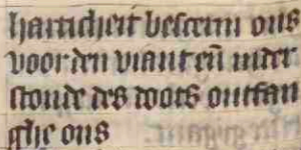 harticheit bescerm ons
voor den viant en̄ in der
stonde des doots ontfan
ghe ons